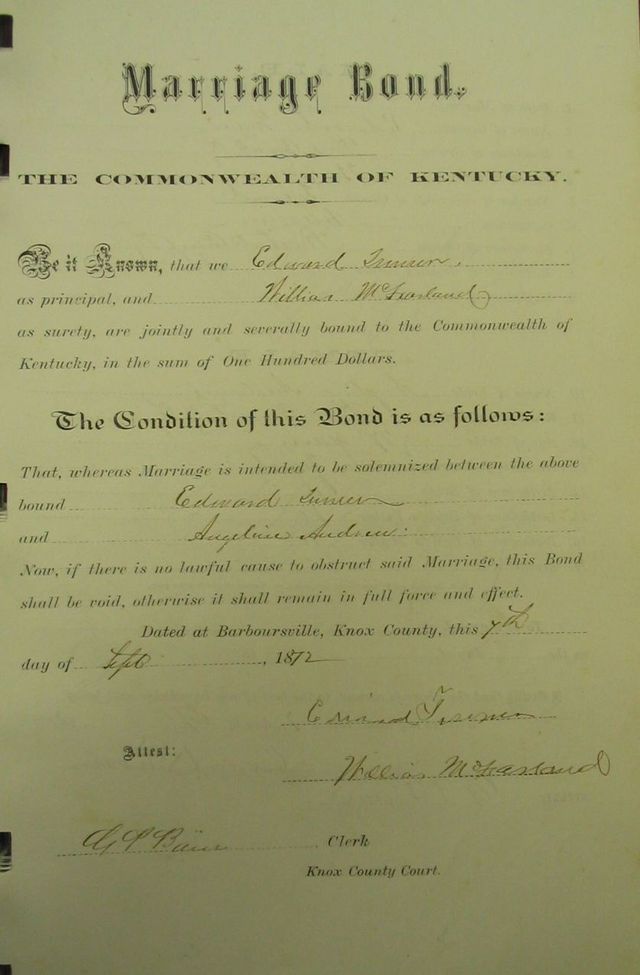 Marriage Bond.
THE COMMONWEALTH OF KENTUCKY.
Be it Known, that we Edward Turner.
as principal, and William McFarland
as surety, are jointly and severally bound to the Commonwealth of
Kentucky, in the sum of One Hundred Dollars.
The Condition of this Bond is as follows:
That, whereas Marriage is intended to be solemnized between the above
bound Edward Turner
and Angeline
Now, if there is no lawful cause to obstruct said Marriage, this Bond
shall be void, otherwise it shall remain in full force and effect.
Dated at Barboursville, Knox County, this 7th
day of Sept , 1872
Edward Turner
Attest:
William McFarland
Clerk
Knox County Court.